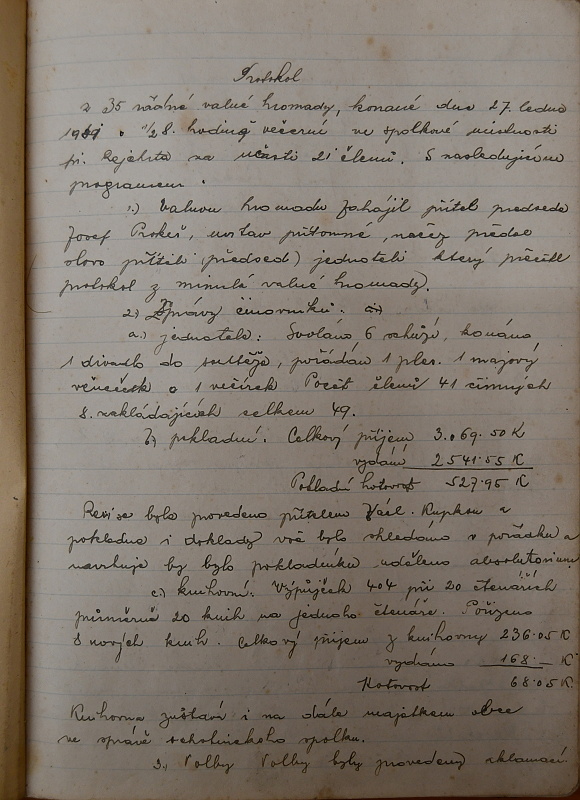 Protokol
z 35 řádné valné hromady, konané dne 27. ledna
19 o 1/2 8. hodině večerní ve spolkové místnosti
př. Rejchrta na účasti 21 členů. S následujícím
programem.
1.) Valnou hromadu zahájil přítel předseda
Josef Prokeš, uvítav přítomné, načež předal
slovo příteli (předsed) jednateli který přečetl
protokol z minulé valné hromady).
2.) Zprávy činovníků:
a.) jednatele: Svoláno 6 schůzí, konáno
1 divadlo do soutěže, pořádán 1 ples. 1 majový
věneček a 1 večírek Počet členů 41 činných
8. zakládajících celkem 49.
b) pokladní. Celkový příjem 3.069.50 K
vydání 2541.55 K
Pokladní hotovost 527.95 K
Revise byla provedena přítelem Václ. Kupkou a
pokladna i doklady vše bylo shledáno v pořádku a
navrhuje by bylo pokladníku uděleno absolutorium
c.) knihovní: Výpůjček 404 při 20 čtenářích
průměrně 20 knih na jednoho čtenáře. Pořízeno
8 nových knih. Celkový příjem z knihovny 236.05 K
vydáno 168.— K
Hotovost 68.05 K.
Knihovna zůstává i na dále majetkem obce
ve správě ochotnického spolku.
3., Volby Volby byly provedeny aklamací.